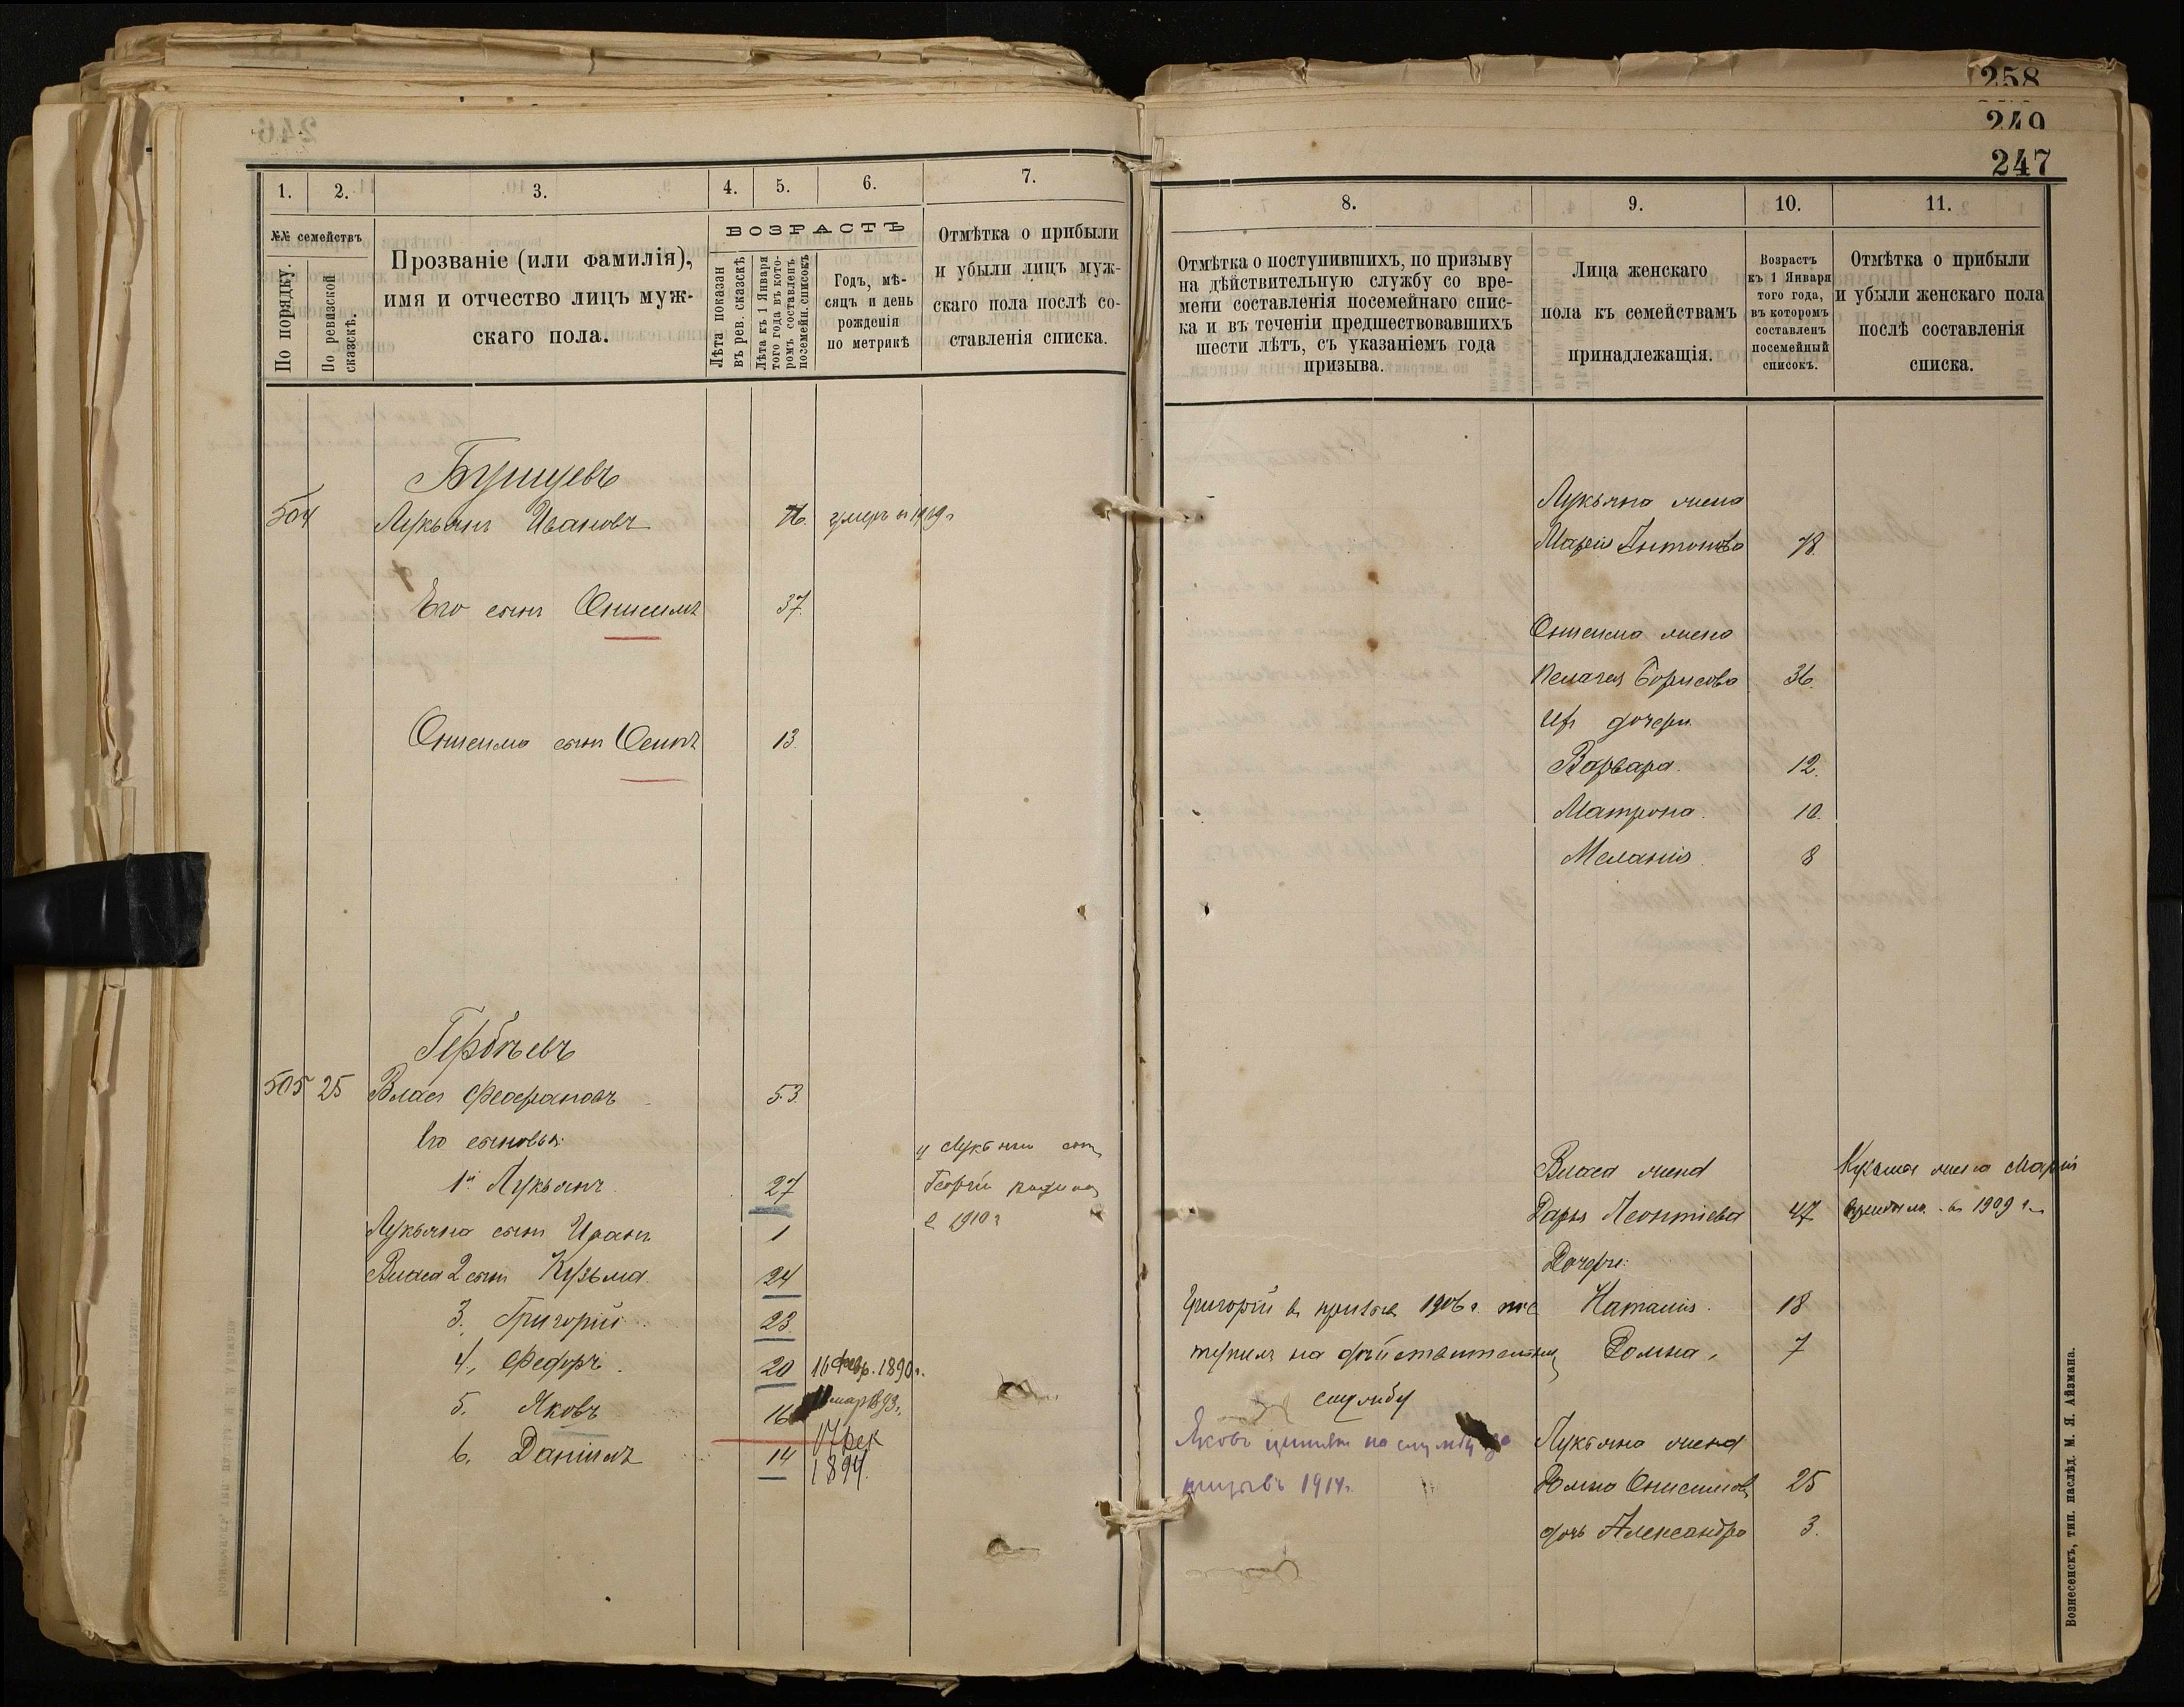 258
249
247
1.
2.
3.
4.
5.
6.
7.
№№ семействъ
По порядку.
По ревизской сказскѣ.
Прозваніе (или фамилія),
имя и отчество лицъ муж-
скаго пола.
ВОЗРАСТЪ
Лѣта показан
въ рев. сказскѣ
Лѣта къ 1 Января
того года въ кото-
ромъ составленъ
посемейн. список
Годъ, мѣ-
сяцъ и день
рожденія
по метрикѣ
Отмѣтка о прибыли
и убыли лицъ муж-
скаго пола послѣ со-
ставленія списка.
504
Лукьянъ Ивановъ
76.
умеръ в 1909 г
Его сынъ Онисимъ
37.
Онисима сынъ Осипъ
13.
505 25 Власъ Феофановъ
53.
Его сыновья:
1й Лукьянъ
27
у Лукьяна сынъ
Георгій
в 1910 г
Лукьяна сынъ Иванъ
1
Власа 2 сынъ Кузьма.
24
3. Григорій
23.
4, Федоръ.
20
16 февр. 1890 г.
5. Яковъ
16
марта 93 г.
6. Даніилъ
14
17 дек
1894.
8.
9.
10.
11.
Отмѣтка о поступившихъ, по призыву
на дѣйствительную службу со вре-
мени составленія посемейнаго спис-
ка и въ теченіи предшествовавшихъ
шести лѣтъ, съ указаніемъ года
призыва.
Лица женскаго
пола къ семействамъ
принадлежащія.
Возрастъ
къ 1 Января
того года,
въ которомъ
составленъ
посемейный
списокъ.
Отмѣтка о прибыли
и убыли женскаго пола
послѣ составленія
списка.
Лукьяна жена
Марія Антонова
78.
Онисима жена
Пелагея Борисова
36.
Ихъ дочери
Варвара.
12.
Матрона.
10.
Меланія.
8
Власа жена
Дарья Леонтіева
47
Кузьмы жена Марія
в 1909 г.
Дочери:
Григорій в призыв 1906 г. пос
Наталія.
18
тупилъ на дѣйствительную
Домна,
7
службу
Яковъ принятъ на службу
призывъ 1914 г.
Лукьяна жена
Домна Онисимова
25
дочь Александра
3.
Вознесенскъ, тип. наслѣд. М. Я. Айзмана.